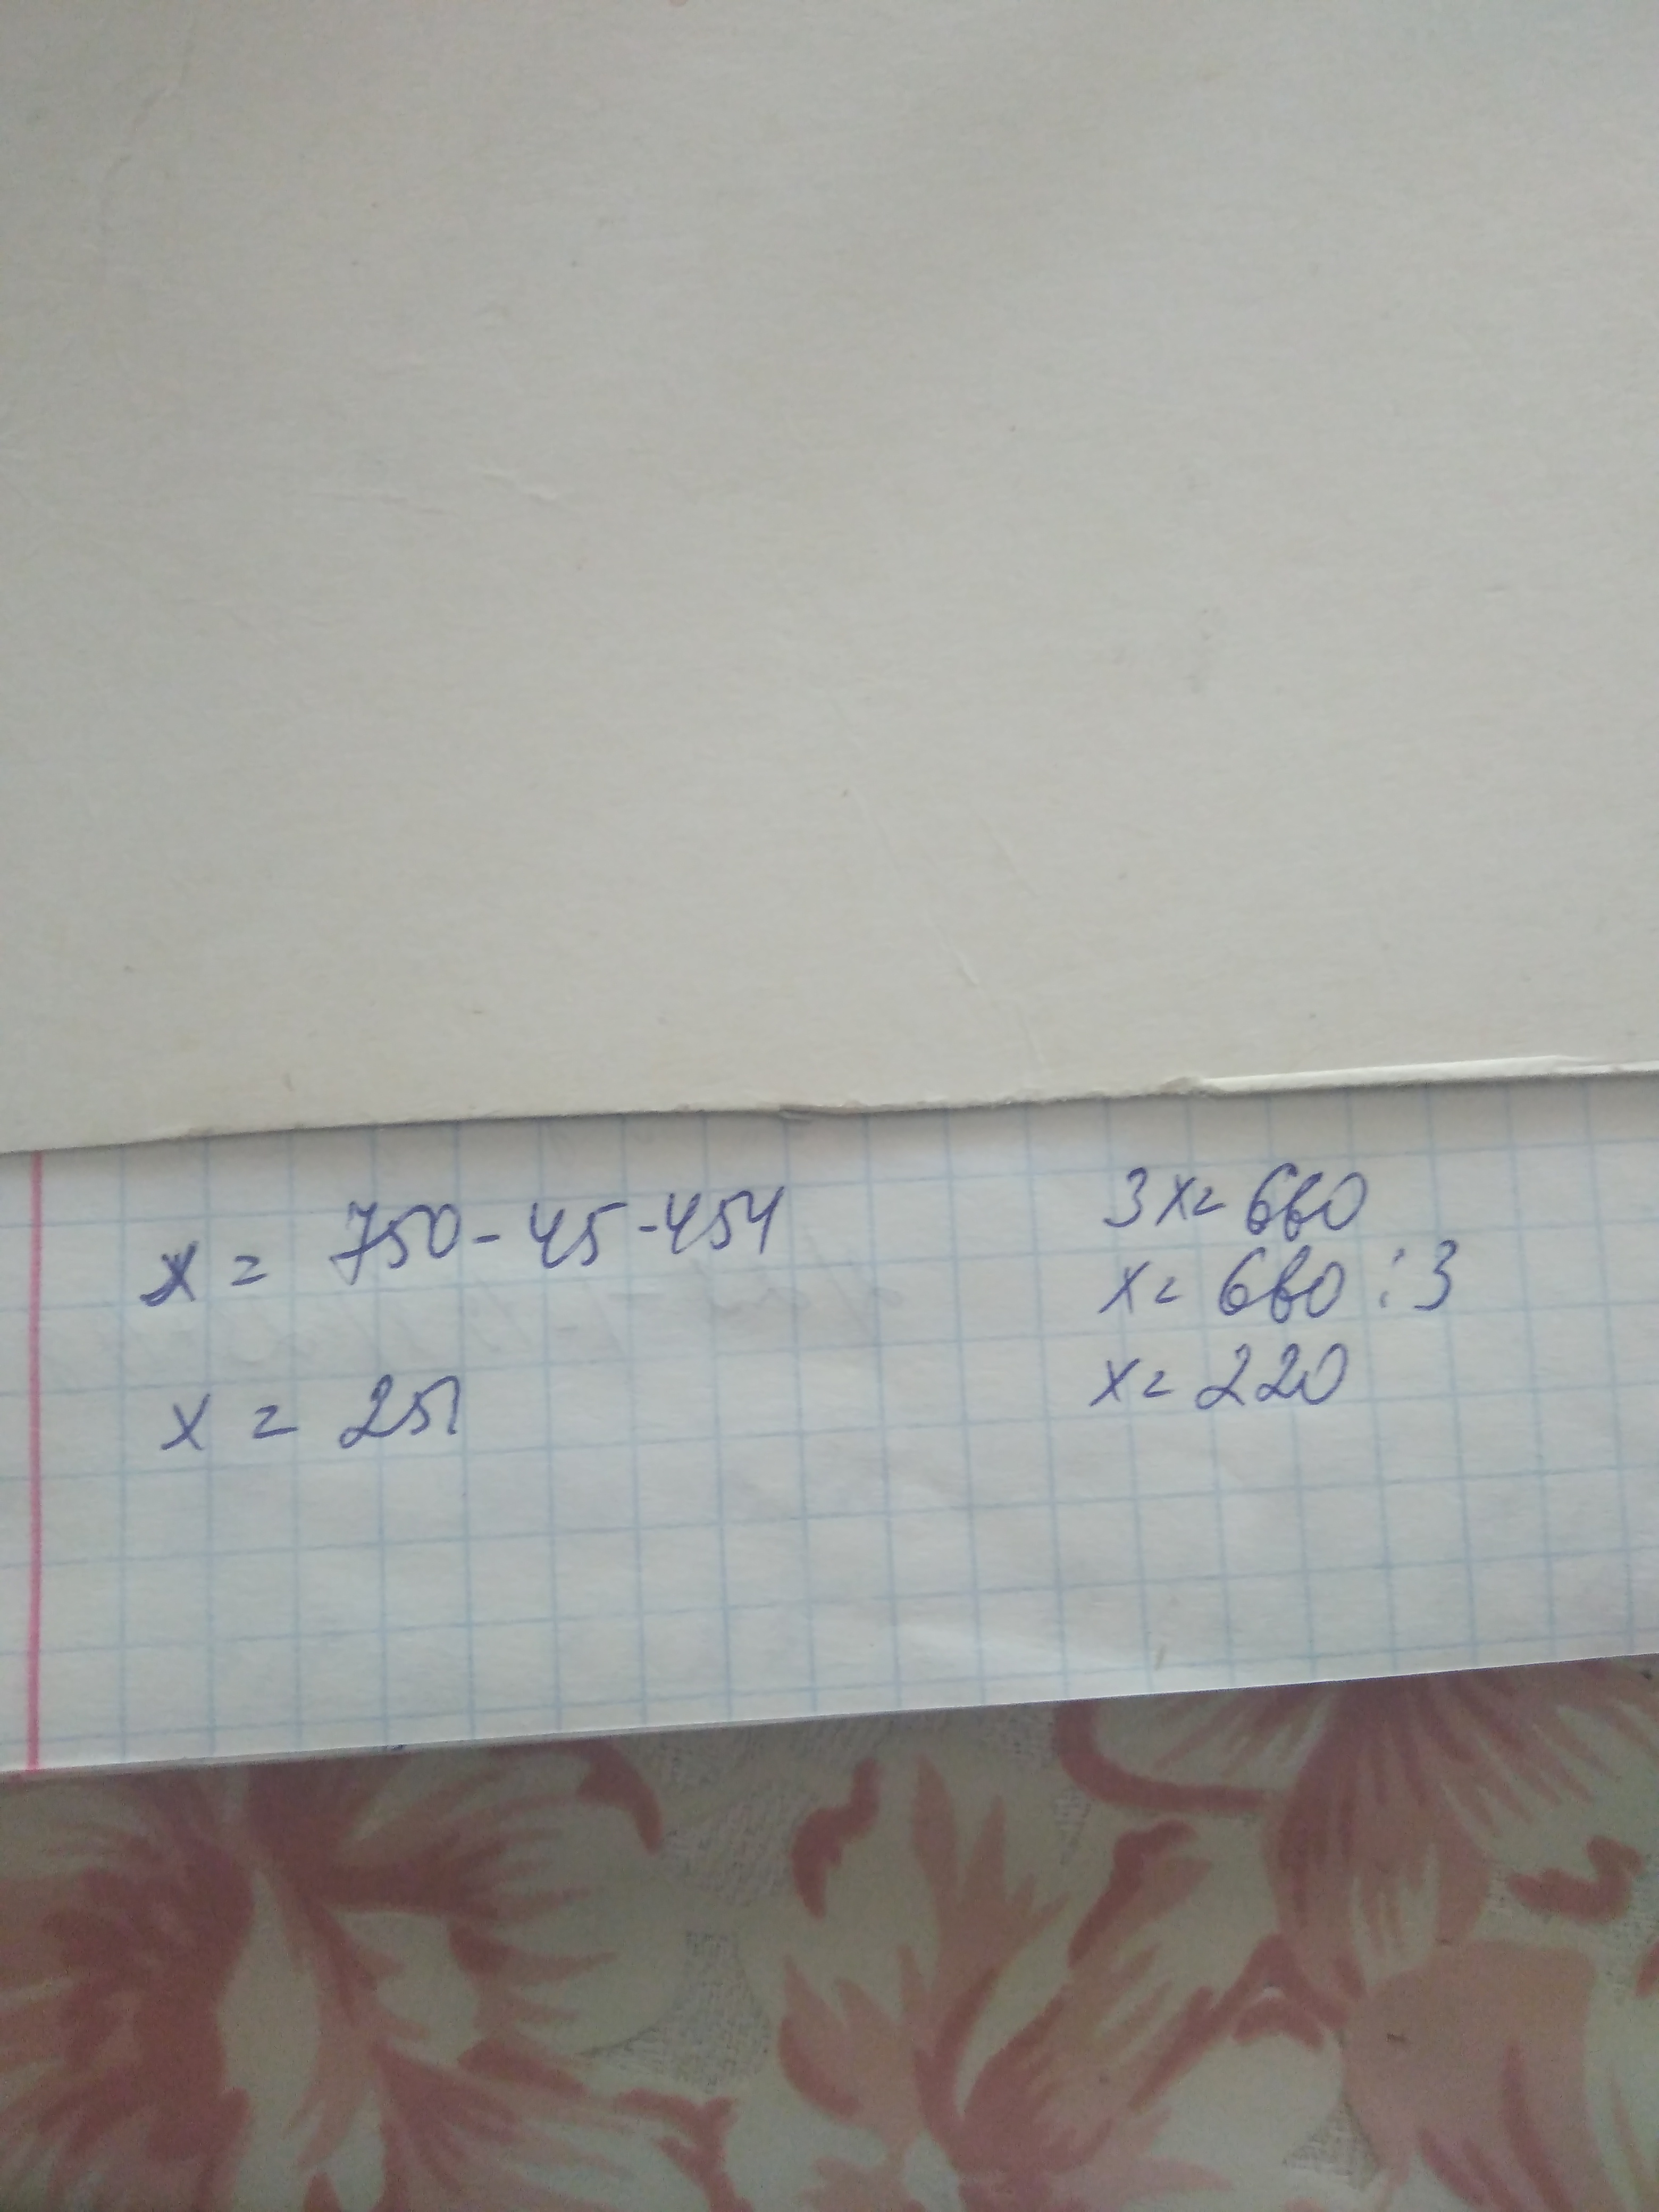 x = 750 - 45 - 454
x = 251
3x = 660
x = 660 : 3
x = 220